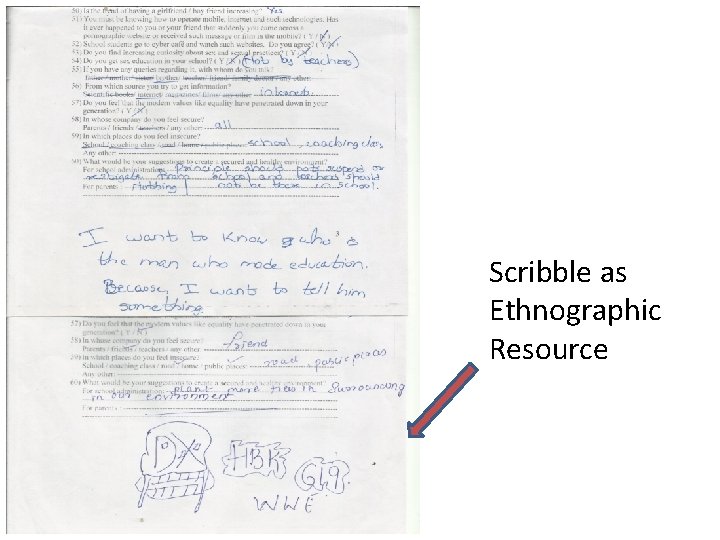 50) Is the trend of having a girlfriend / boy friend increasing? Yes
51) You must be knowing how to operate mobile, internet and such technologies. Has
it ever happened to you or your friend that suddenly you came across a
pornographic website or received such message or film in the mobile? (Y/N)
52) School students go to cyber café and watch such websites. Do you agree? (Y/N)
53) Do you find increasing curiosity about sex and sexual practices? (Y/N)
54) Do you get sex education in your school? (Y/N) (Not by teachers)
55) If you have any queries regarding it, with whom do you talk?
father / mother/ sister/ brother/ teacher/ friend/ family doctor / any other:
56) From which source you try to get information?
Scientific books/ internet/ magazines/ films/ any other: internet.
57) Do you feel that the modern values like equality have penetrated down in your
generation? (Y/N)
58) In whose company do you feel secure?
Parents / friends / teachers / any other: all
59) In which places do you feel insecure?
School / coaching class / road / home / public places: school, coaching class
Any other:
60) What would be your suggestions to create a secured and healthy environment?
For school administration: Principle should
from school and teachers should
For parents: not be there in school.
I want to know who's
the man who made education.
Because, I want to tell him
something
57) Do you feel that the modern values like equality have penetrated down in your
generation? (Y/N)
58) In whose company do you feel secure?
Parents / friends / teachers / any other: friend
59) In which places do you feel insecure?
School / coaching class / road / home / public places: road public places
Any other:
60) What would be your suggestions to create a secured and healthy environment?
For school administration: plant more trees in surrounding
in our environment
For parents:
DX HBK
WWE
Scribble as
Ethnographic
Resource